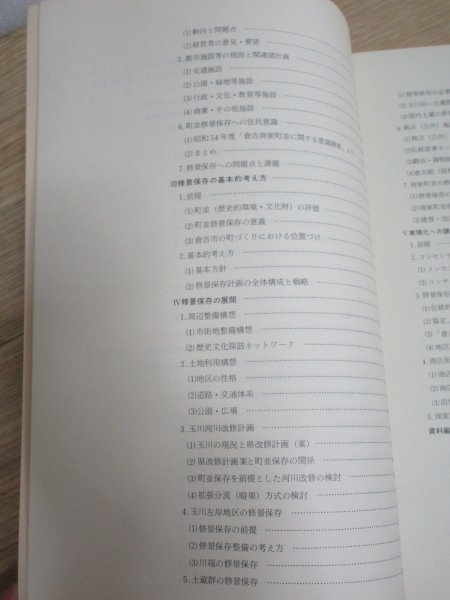 (1)動向と問題点
(2)経営者の意見・要望
5.都市施設等の現況と関連諸計画
(1)交通施設
(2)公園・緑地等施設
(3)行政・文化・教育等施設
(4)商業・その他施設
6.町並修景保存への住民意識
(1)昭和54年度「倉吉商家町並に関する意識調査」より
(2)まとめ
7.修景保存への問題点と課題
Ⅲ修景保存の基本的考え方
1.前提
(1)町並(歴史的環境・文化財)の評価
(2)町並修景保存の意義
(3)倉吉市の町づくりにおける位置づけ
2.基本的考え方
(1)基本方針
(2)修景保存計画の全体構成と戦略
Ⅳ修景保存の展開
1.周辺整備構想
(1)市街地整備構想
(2)歴史文化探訪ネットワーク
2.土地利用構想
(1)地区の性格
(2)道路・交通体系
(3)公園・広場
3.玉川河川改修計画
(1)玉川の現況と県改修計画(案)
(2)県改修計画案と町並保存の関係
(3)町並保存を前提とした河川改修の検討
(4)拡張分流(暗渠)方式の検討
4.玉川左岸地区の修景保存
(1)修景保存の前提
(2)修景保存整備の考え方
(3)川端の修景保存
5.土蔵群の修景保存
(1)修景保存の必
(2)玉川沿い土蔵
(3)郭内土蔵の修
6.拠点(公共)施
(1)拠点(公共)
(2)伝統産業セン
(4)倉吉館(仮
7.商家町並の修
(1)商家町並
(2)建造物
(3)建修・改
Ⅴ実現化への課
1.前提
2.コンセン
(1)コンセン
(2)コンサ
3.修景保存
(1)伝統的
(2)協定
(3)「倉
(4)地区
4.商店街
(1)商店
(2)商
(3)活
5.商家
資料編